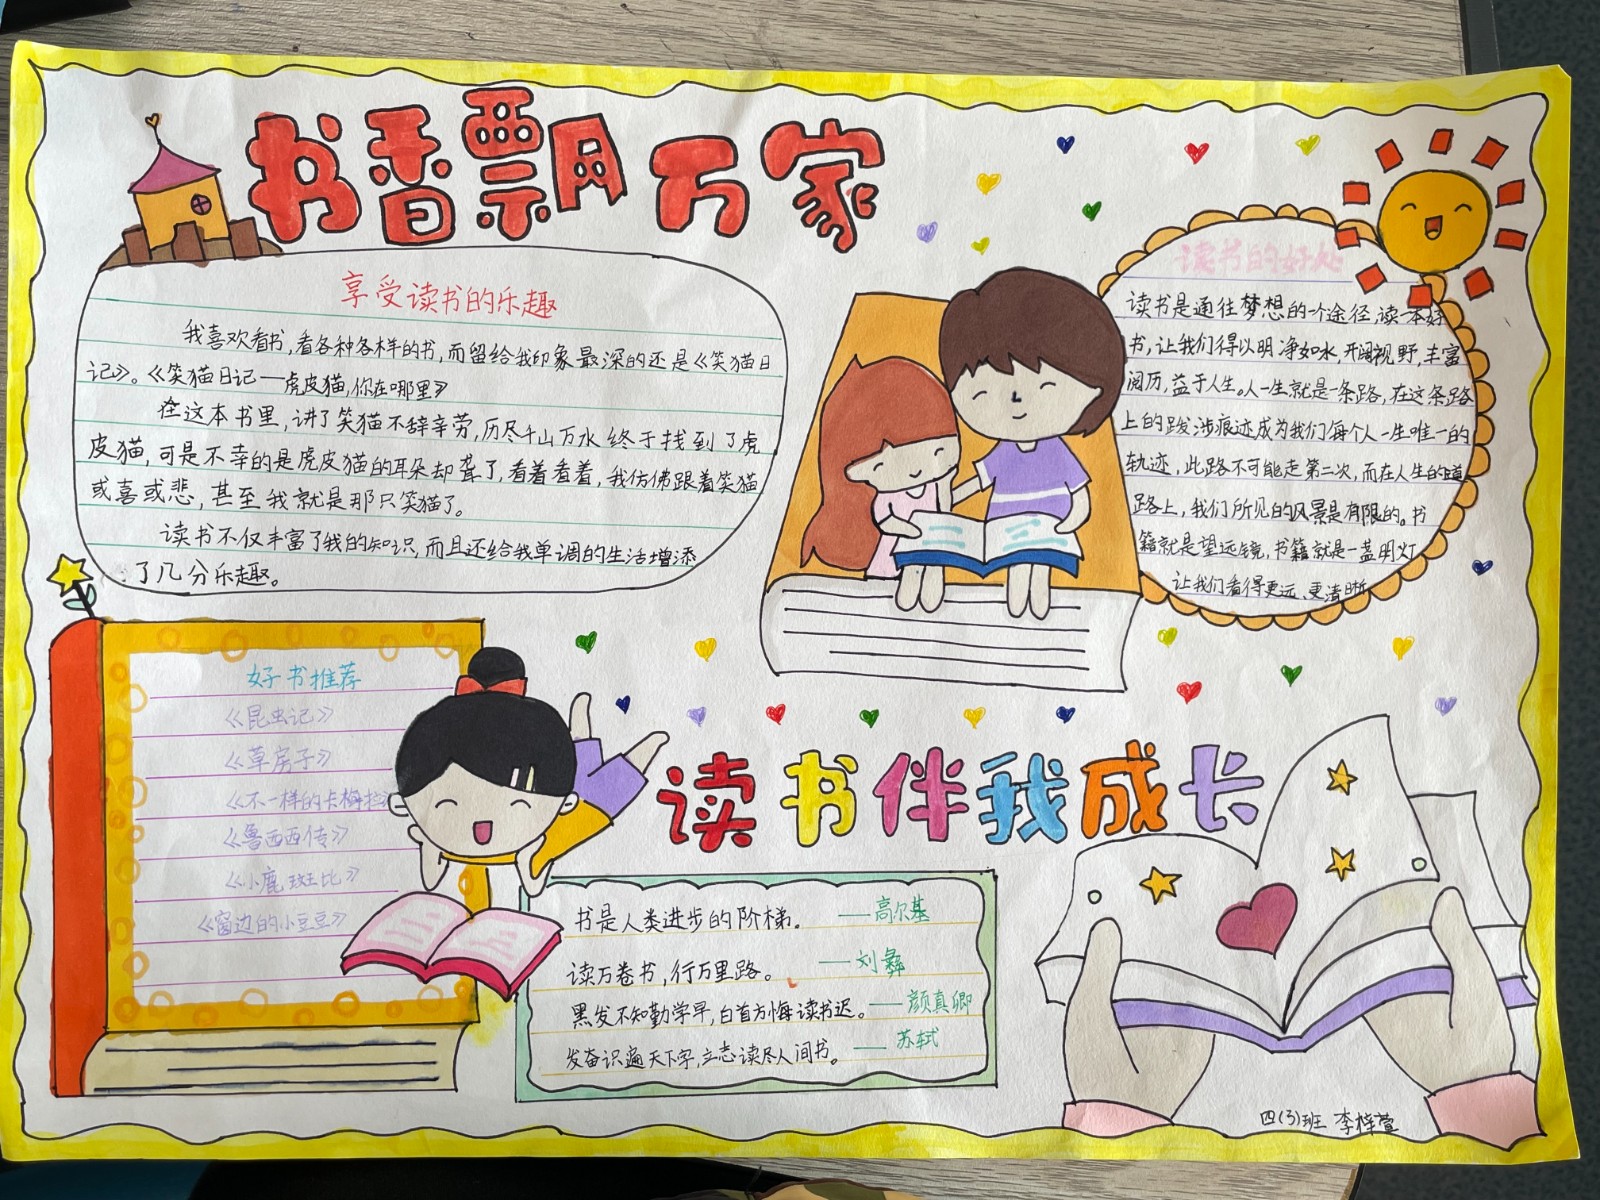 书香飘万家
享受读书的乐趣
我喜欢看书,看各种各样的书,而留给我印象最深的还是《笑猫日
记》。《笑猫日记—虎皮猫,你在哪里》
在这本书里,讲了笑猫不辞辛劳,历尽千山万水终于找到了虎
皮猫,可是不幸的是虎皮猫的耳朵却聋了,看着看着,我仿佛跟着笑猫
或喜或悲,甚至我就是那只笑猫了。
读书不仅丰富了我的知识,而且还给我单调的生活增添
了几分乐趣。
读书的好处
读书是通往梦想的一个途径,读一本好
书,让我们得以明净如水,开阔视野,丰富
阅历,益于人生。人一生就是一条路,在这条路
上的跋涉痕迹成为我们每个人一生唯一的
轨迹,此路不可能走第二次,而在人生的道
路上,我们所见的风景是有限的。书
籍就是望远镜,书籍就是一盏明灯
让我们看得更远、更清晰
好书推荐
《昆虫记》
《草房子》
《不一样的卡梅拉
《鲁西西传》
《小鹿斑比》
《窗边的小豆豆》
读书伴我成长
书是人类进步的阶梯。——高尔基
读万卷书,行万里路。——刘彝
黑发不知勤学早,白首方悔读书迟。——颜真卿
发奋识遍天下字,立志读尽人间书。——苏轼
四(3)班 李梓萱